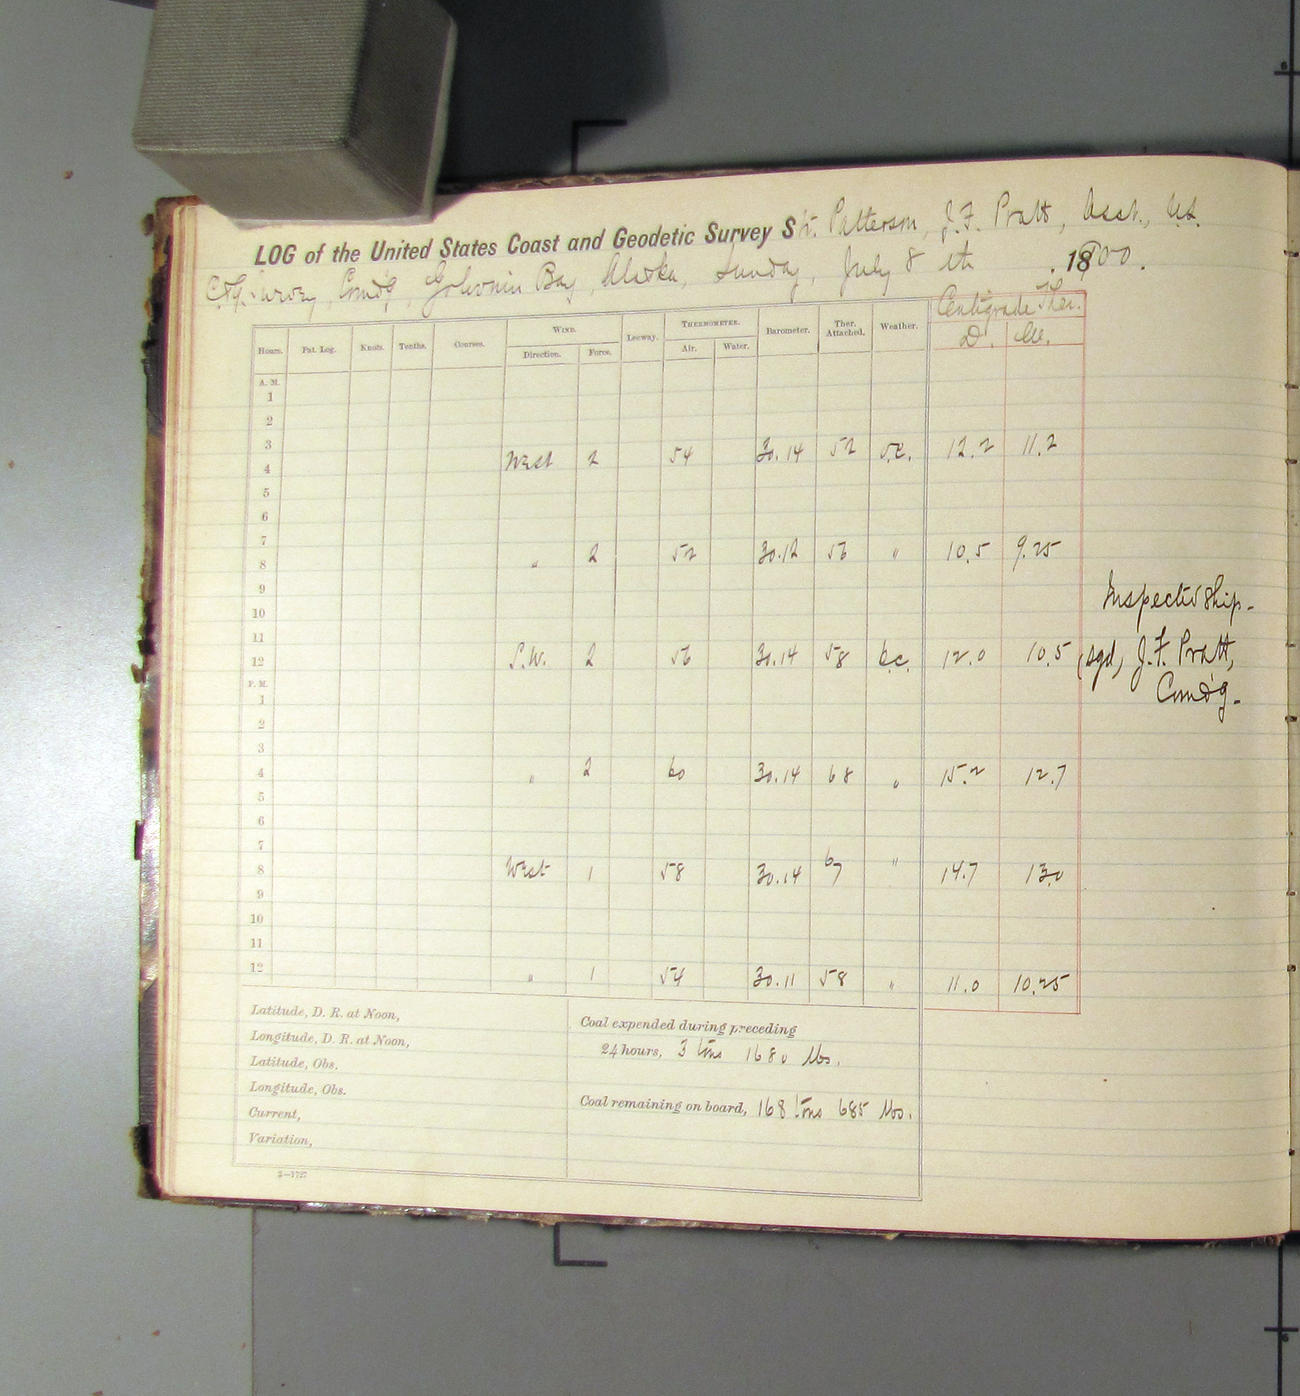 LOG of the United States Coast and Geodetic Survey Str. Patterson, J. F. Pratt, Asst., U.S.
C. & G. Survey, Comd'g, Golovnin Bay, Alaska, Sunday, July 8 th, 1900.
Centigrade Ther.
Hours. Pat. Log. Knots. Tenths. Courses. WIND. Leeway. THERMOMETER. Barometer. Ther. Attached. Weather. D. W.
Direction. Force. Air. Water.
A. M.
1
2
3
4 West 2 54 30.14 52 12.2 11.2
5
6
7
8 " 2 52 30.12 56 " 10.5 9.25
9
10
11
12 S.W. 2 56 30.14 58 b.c. 12.0 10.5
Inspected Ship-
(sgd) J. F. Pratt,
Comd'g-
P. M.
1
2
3
4 " 2 60 30.14 68 " 15.2 12.7
5
6
7
8 West 1 58 30.14 67 " 14.7 13.0
9
10
11
12 " 1 54 30.11 58 " 11.0 10.25
Latitude, D. R. at Noon,
Longitude, D. R. at Noon,
Latitude, Obs.
Longitude, Obs.
Current,
Variation,
Coal expended during preceding
24 hours, 3 tons 1680 lbs.
Coal remaining on board, 168 tons 685 lbs.